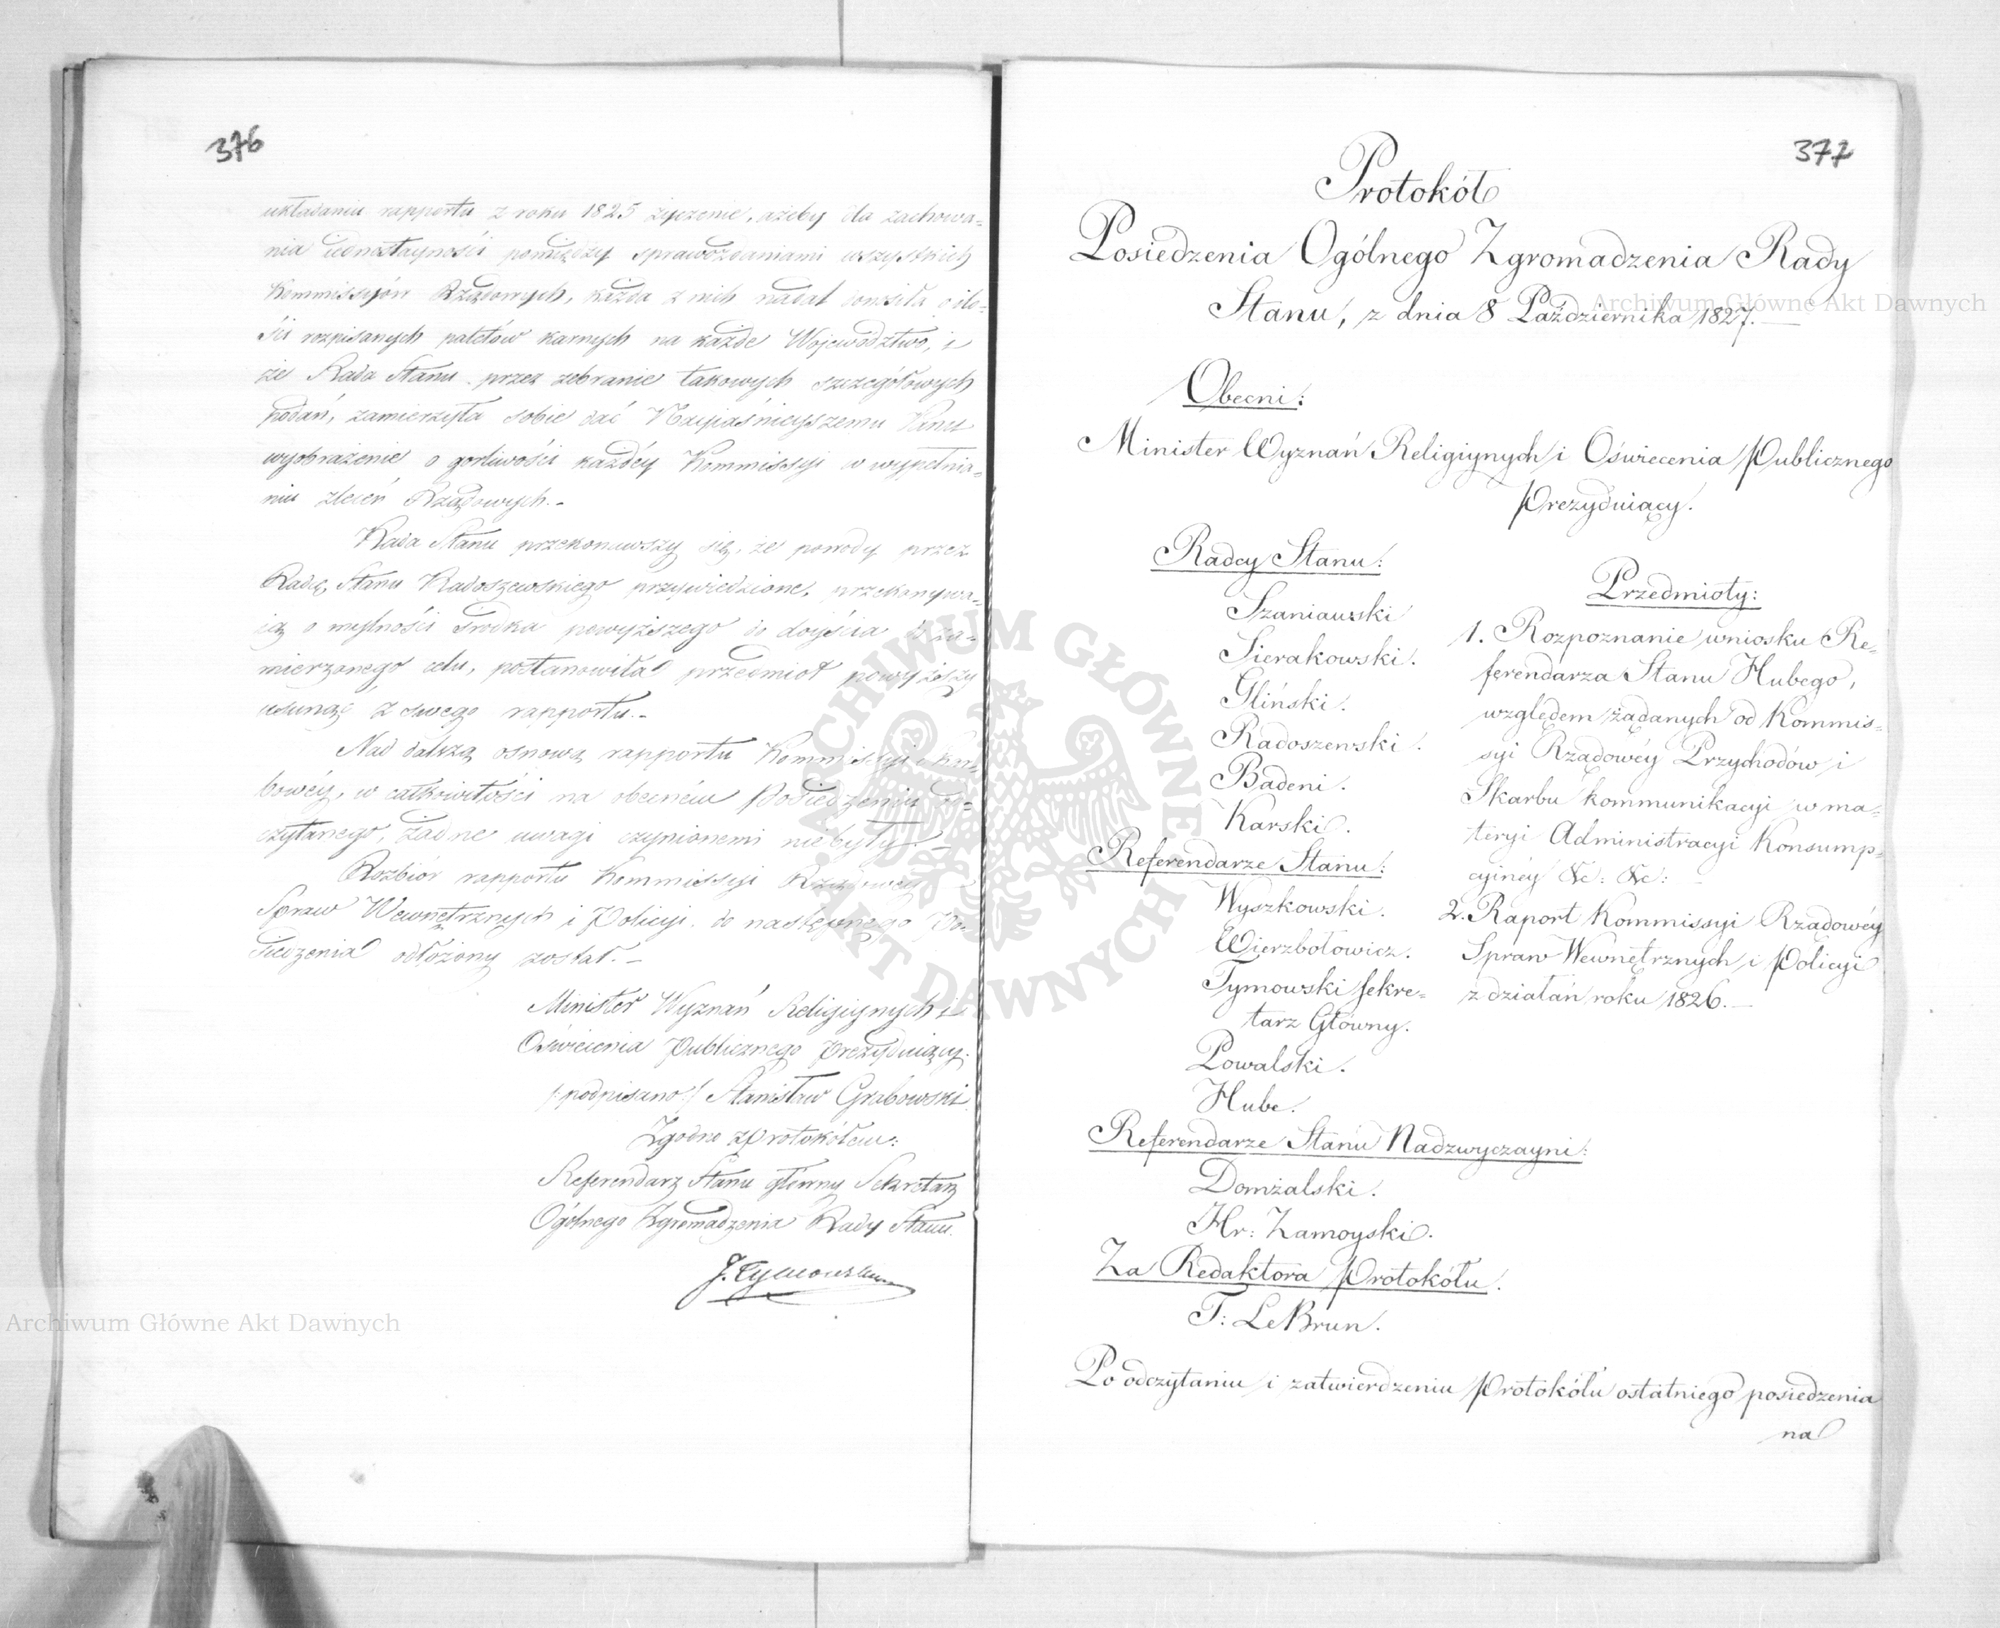 376
układaniu rapportu z roku 1825 życzenie, ażeby dla zachowa=
nia iednostayności pomiędzy sprawozdaniami wszystkich
Kommissyów Rządowych, każda z nich nadal donosiła o ilo=
ści rozpisanych paletów karnych na każde Województwo, i
że Rada Stanu przez zebranie takowych szczegółowych
podań, zamierzyła sobie dać Nayjaśnieyszemu Panu
wyobrażenie o gorliwości każdéy Kommissyi w wypełnia=
niu zleceń Rządowych.-
Rada Stanu przekonawszy się, że powody przez
Radcę Stanu Radoszewskiego przywiedzione, przekonywa=
ią o mylności środka powyższego do doyścia do za=
mierzonego celu, postanowiła przedmiot powyższy
usunąć z swego rapportu.-
Nad dalszą osnową rapportu Kommissyi
w całkowitości na obecném Posiedzeniu od=
czytanego, żadne uwagi czynionemi nie były.-
Rozbiór rapportu Kommissyi Rządowéy
Spraw Wewnętrznych i Policyi do następnego Po=
siedzenia odłożony został.-
Minister Wyznań Religiynych i
Oświecenia Publicznego Prezyduiący.
/podpisano/ Stanisław Grabowski
Zgodno z Protokółem:
Referendarz Stanu główny Sekretarz
Ogólnego Zgromadzenia Rady Stanu.
J. Tymowski
377
Protokół
Posiedzenia Ogólnego Zgromadzenia Rady
Stanu, z dnia 8 Października 1827.-
Obecni:
Minister Wyznań Religiynych i Oświecenia Publicznego
Prezyduiący.
Radcy Stanu:
Szaniawski
Sierakowski.
Gliński.
Radoszewski.
Badeni.
Karski.
Referendarze Stanu:
Wyszkowski.
Wierzbołowicz.
Tymowski Sekre=
tarz Główny.
Powalski.
Hube.
Referendarze Stanu Nadzwyczayni:
Domżalski.
Hr: Zamoyski.
Za Redaktora Protokółu.
T: Le Brun.
Przedmioty:
1. Rozpoznanie wniosku Re=
ferendarza Stanu Hubego,
względem żądanych od Kommis=
syi Rządowéy Przychodów i
Skarbu kommunikacyi w ma=
teryi Administracyi Konsump=
cyinéy &c: &c: -
2. Raport Kommissyi Rządowéy
Spraw Wewnętrznych i Policyi
z działań roku 1826.-
Po odczytaniu i zatwierdzeniu Protokółu ostatniego posiedzenia
na
Archiwum Główne Akt Dawnych
Archiwum Główne Akt Dawnych
ARCHIWUM GŁÓWNE AKT DAWNYCH